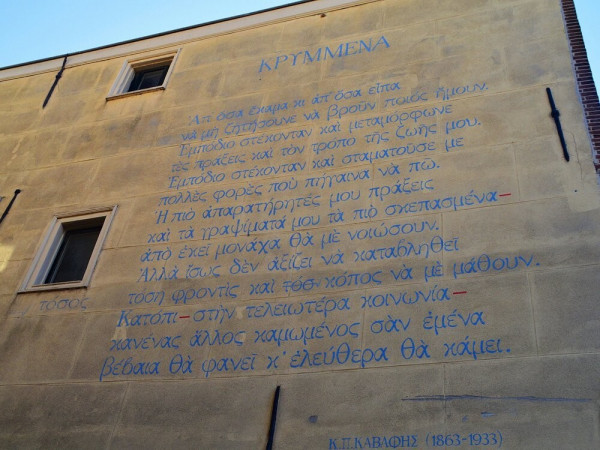 ΚΡΥΜΜΕΝΑ
Ἀπ' ὅσα ἔκαμα κι ἀπ' ὅσα εἶπα
νὰ μὴ ζητήσουνε νὰ βροῦν ποιὸς ἤμουν.
Ἐμπόδιο στέκονταν καὶ μεταμόρφωνε
τὲς πράξεις καὶ τὸν τρόπο τῆς ζωῆς μου.
Ἐμπόδιο στέκονταν καὶ σταματοῦσε με
πολλὲς φορὲς ποὺ πήγαινα νὰ πῶ.
Ἡ πιὸ ἀπαρατήρητές μου πράξεις
καὶ τὰ γραψίματά μου τὰ πιὸ σκεπασμένα—
ἀπὸ ἐκεῖ μονάχα θὰ μὲ νοιώσουν.
Ἀλλὰ ἴσως δὲν ἀξίζει νὰ καταβληθεῖ
τόσος τόση φροντὶς καὶ κόπος νὰ μὲ μάθουν.
Κατόπι—στὴν τελειωτέρα κοινωνία—
κανένας ἄλλος καμωμένος σὰν ἐμένα
βέβαια θὰ φανεῖ κ' ἐλεύθερα θὰ κάμει.
Κ.Π.ΚΑΒΑΦΗΣ (1863-1933)